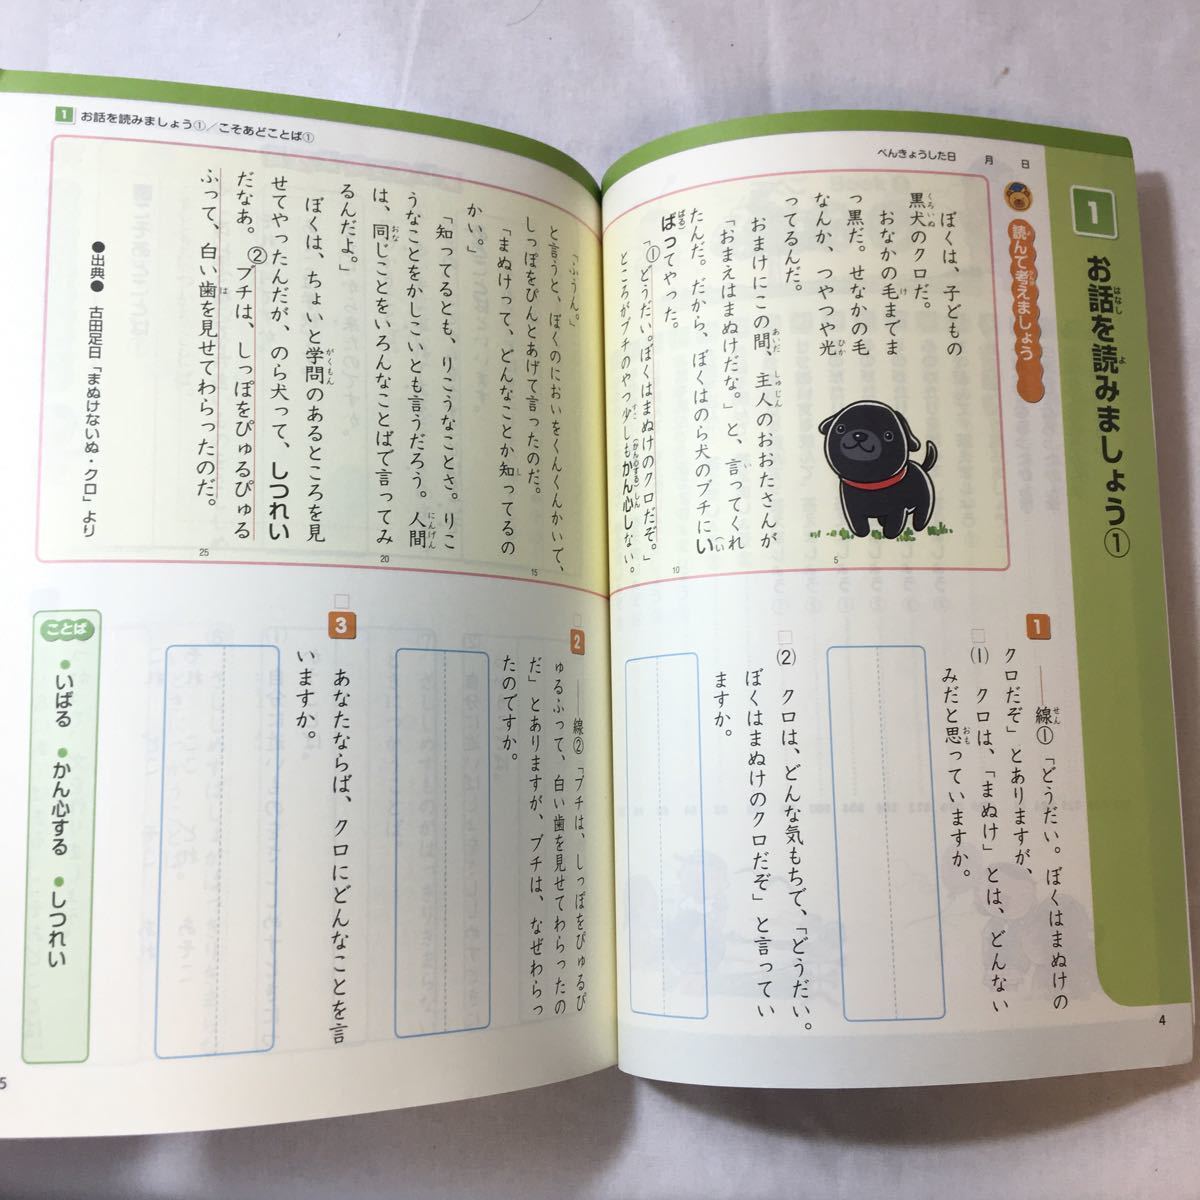 1
お話を読みましょう①
べんきょうした日　月　日
読んで考えましょう
ぼくは、子どもの
黒犬のクロだ。
おなかの毛までま
っ黒だ。せなかの毛
なんか、つやつや光
ってるんだ。
おまけにこの間、主人のおおたさんが
「おまえはまぬけだな。」と、言ってくれ
たんだ。だから、ぼくはのら犬のブチにい
ばってやった。
「①どうだい。ぼくはまぬけのクロだぞ。」
ところがブチのやつ少しもかん心しない。
「ふうん。」
と言うと、ぼくのにおいをくんくんかいで、
しっぽをぴんとあげて言ったのだ。
「まぬけって、どんなことか知ってるの
かい。」
「知ってるとも、りこうなことさ。りこ
うなことをかしこいとも言うだろう。人間
は、同じことをいろんなことばで言ってみ
るんだよ。」
ぼくは、ちょいと学問のあるところを見
せてやったんだが、のら犬って、しつれい
だなあ。②ブチは、しっぽをぴゅるぴゅる
ふって、白い歯を見せてわらったのだ。
●出典● 古田足日「まぬけないぬ・クロ」より
5
10
15
20
25
1
――線①「どうだい。ぼくはまぬけの
クロだぞ」とありますが、
(1) クロは、「まぬけ」とは、どんない
みだと思っていますか。
(2) クロは、どんな気もちで、「どうだい。
ぼくはまぬけのクロだぞ」と言ってい
ますか。
4
1 お話を読みましょう①／こそあどことば①
2
――線②「ブチは、しっぽをぴゅるぴ
ゅるふって、白い歯を見せてわらったの
だ」とありますが、ブチは、なぜわらっ
たのですか。
3
あなたならば、クロにどんなことを言
いますか。
ことば
●いばる ●かん心する ●しつれい
5